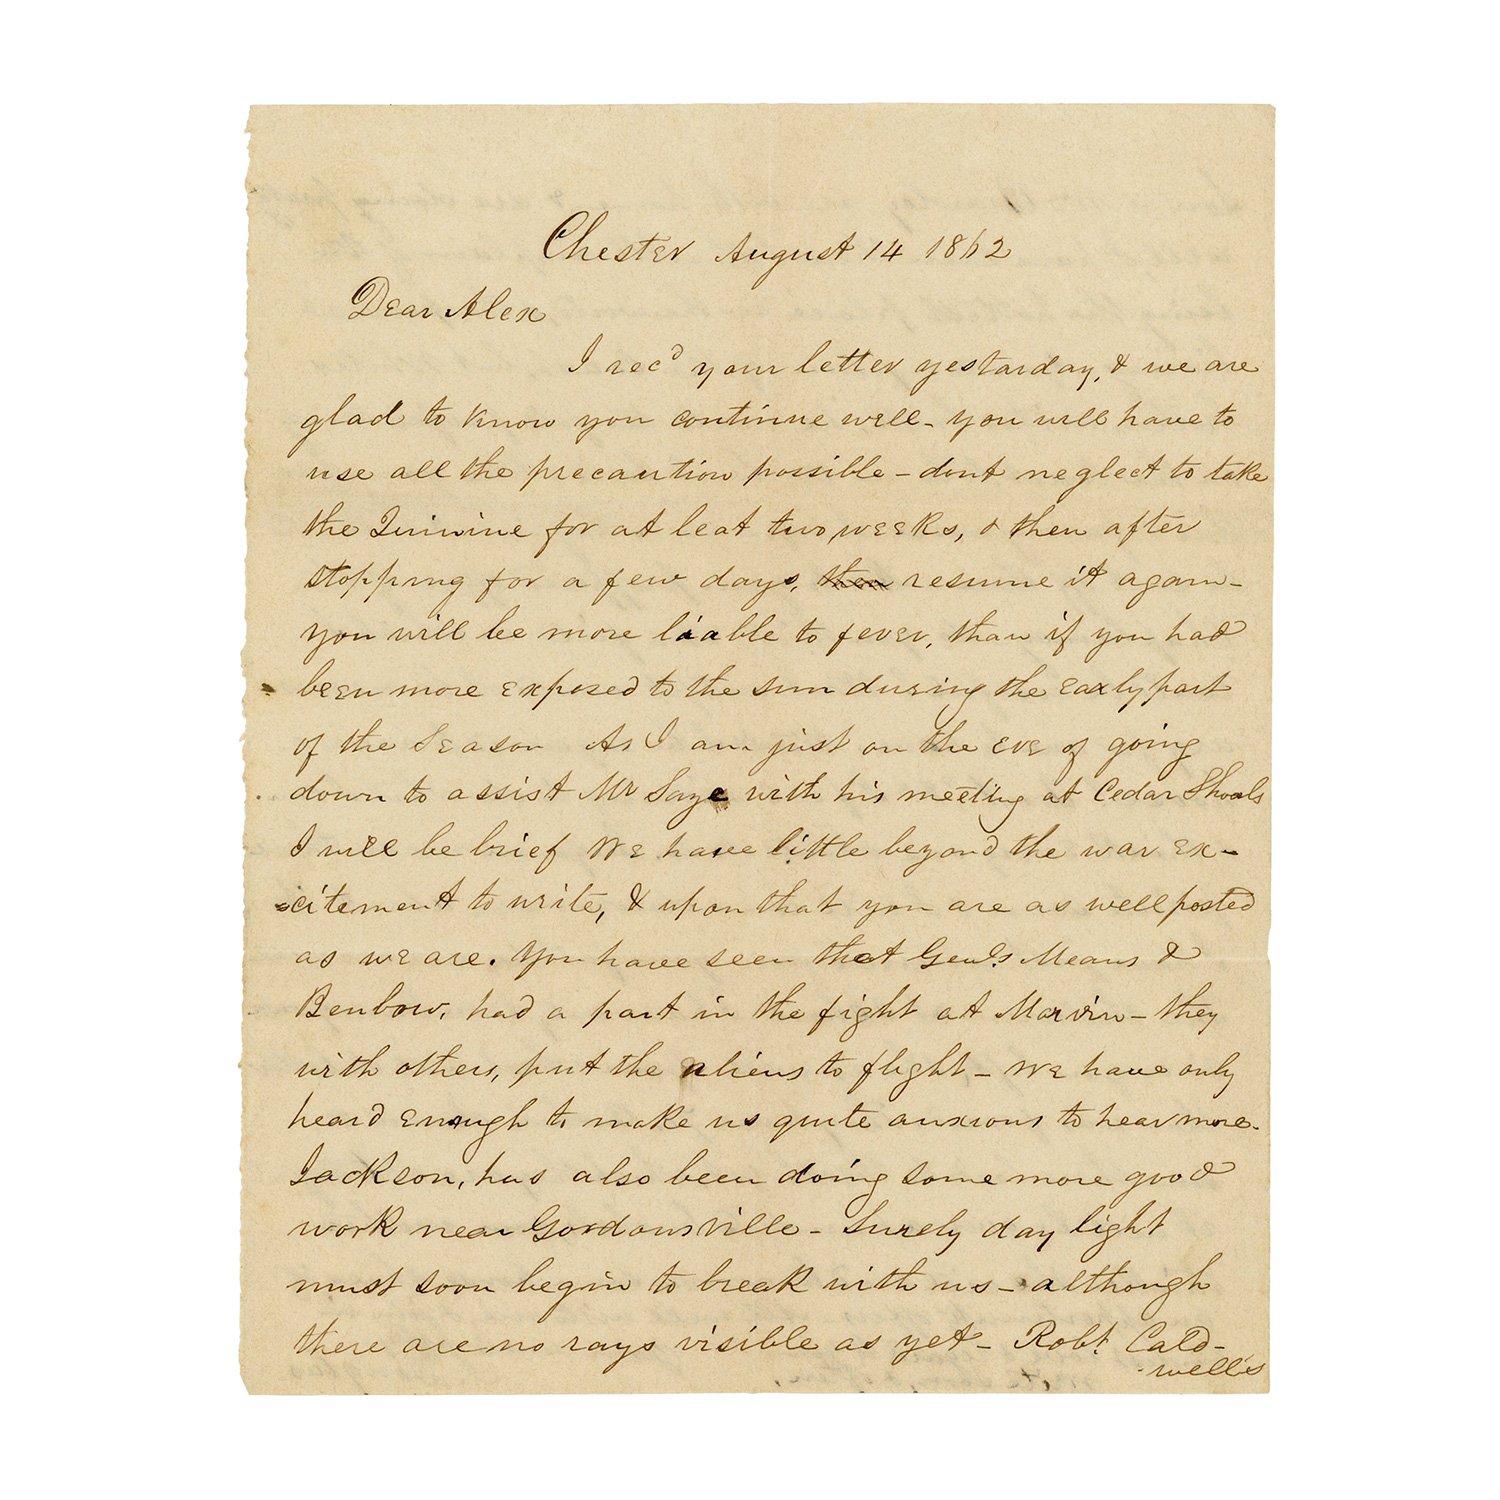 Chester August 14 1862
Dear Alex
I recd your letter yestarday, & we are
glad to know you continue well - you will have to
use all the precaution possible - dont neglect to take
the Quinine for at leat two weeks, & then after
stopping for a few days, then resume it again -
you will be more liable to fever, than if you had
been more exposed to the sun during the early part
of the Season As I am just on the eve of going
down to assist Mr Saye with his meeting at Cedar Shoals
I will be brief We have little beyond the war ex-
=citement to write, & upon that you are as well posted
as we are. You have seen that Genls Means &
Benbow, had a part in the fight at - they
with others, put the aliens to flight - We have only
heard enough to make us quite anxious to hear more.
Jackson, has also been doing some more good
work near Gordonsville - Surely day light
must soon begin to break with us - although
there are no rays visible as yet - Robt. Cald-
-well's